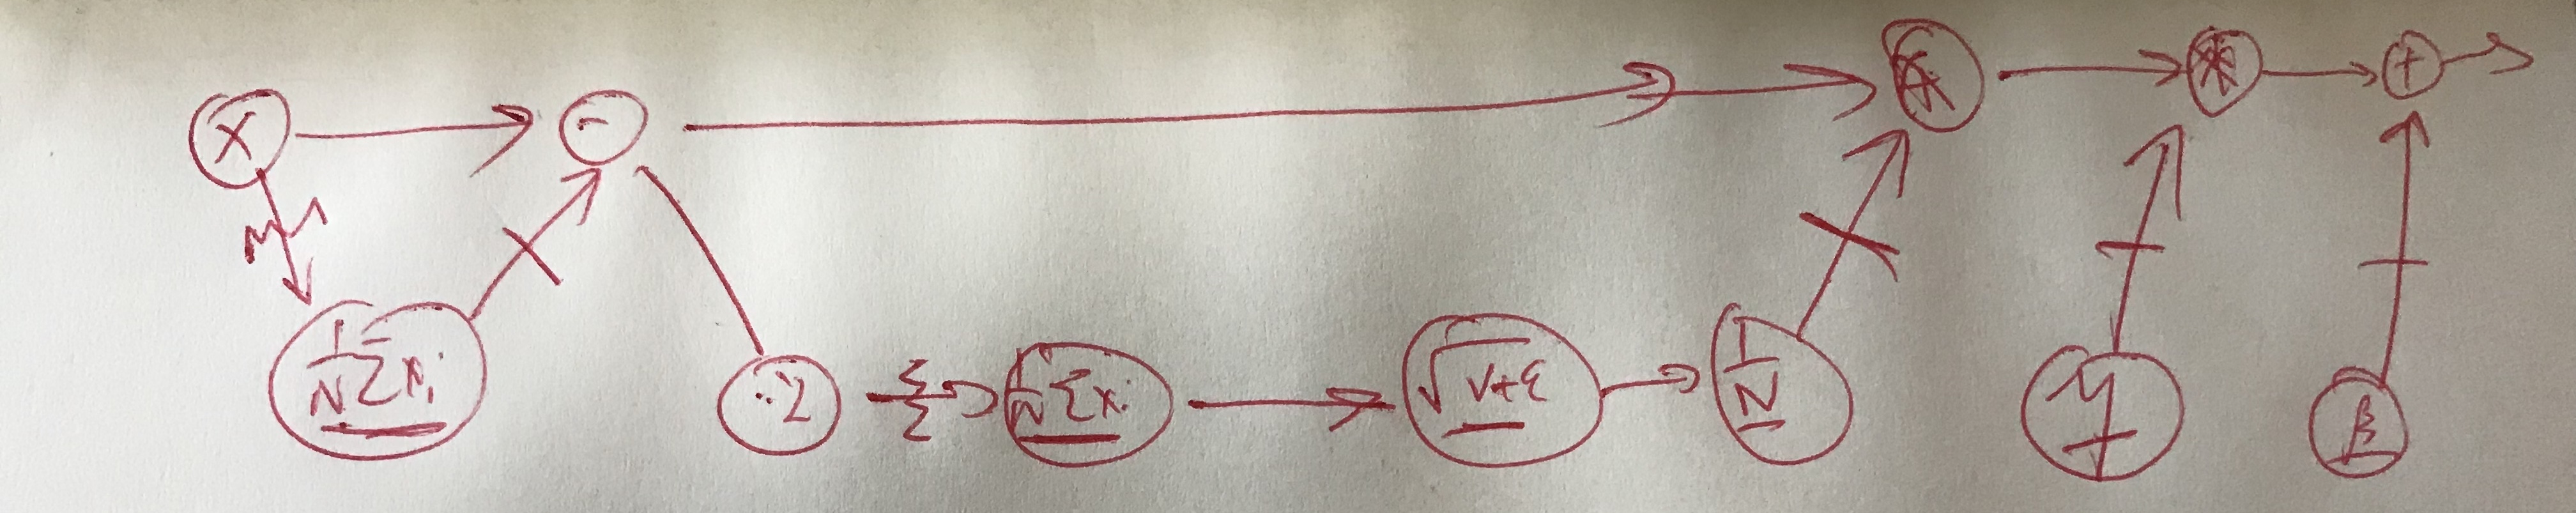 X - * * +
1/N Σxi ··2 1/N Σxi √V+ε 1/N γ β